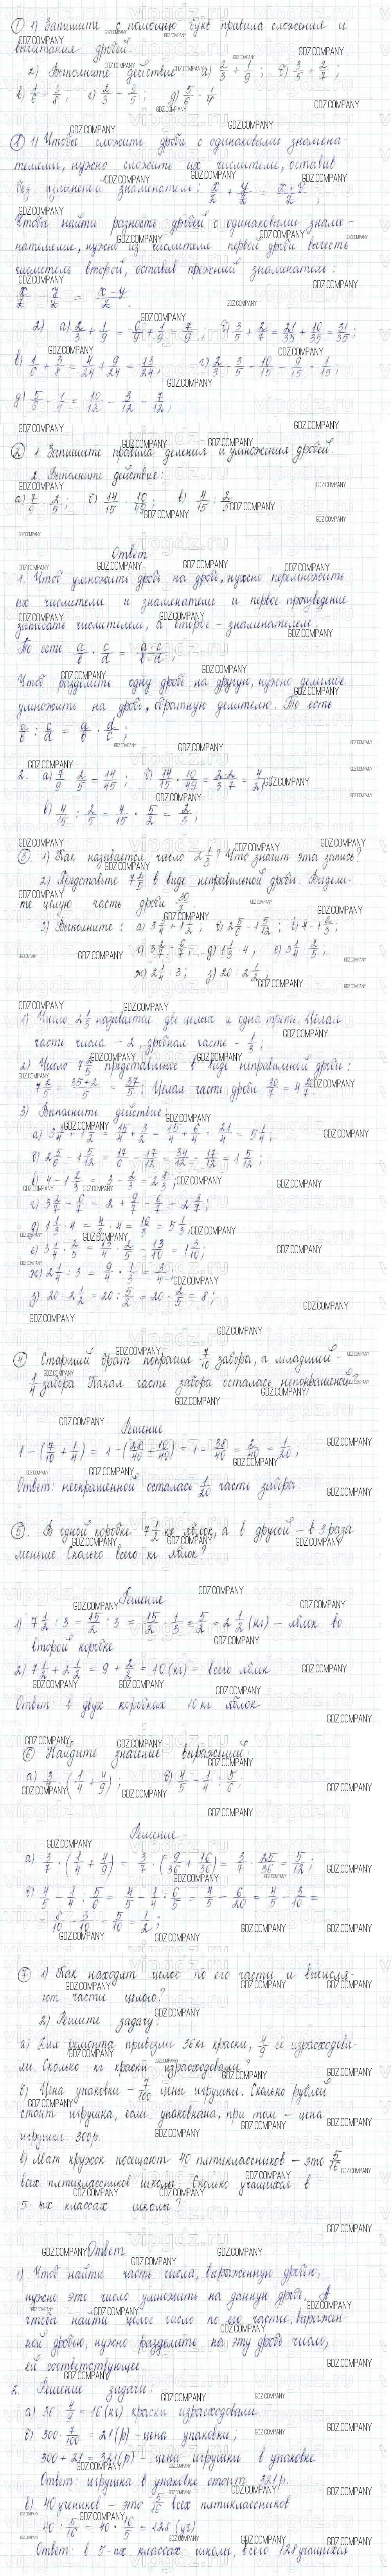 ① 1) Запишите с помощью букв правила сложения и
вычитания дробей.
2) Выполните действие а) 2/3 + 1/9; б) 3/5 + 2/7;
в) 1/6 + 3/8; г) 2/3 - 3/5; д) 5/6 - 1/4
① 1) Чтобы сложить дроби с одинаковыми знамена-
телями, нужно сложить их числители, оставив
без изменения знаменатель: x/2 + y/2 = x+y/2;
Чтобы найти разность дробей с одинаковыми знаме-
нателями, нужно из числителя первой дроби вычесть
числитель второй, оставив прежний знаменатель:
x/2 - y/2 = x-y/2.
2) а) 2/3 + 1/9 = 6/9 + 1/9 = 7/9; б) 3/5 + 2/7 = 21/35 + 10/35 = 31/35;
в) 1/6 + 3/8 = 4/24 + 9/24 = 13/24; г) 2/3 - 3/5 = 10/15 - 9/15 = 1/15;
= 10/12 - 3/12 = 7/12;
② 1. Запишите правила деления и умножения дробей.
2. Выполните действие:
а) 7/9 · 2/5; б) 14/15 · 10/49; в) 4/15 : 2/5
Ответ
1. Чтоб умножить дробь на дробь, нужно перемножить
их числители и знаменатели и первое произведение
записать числителем, а второе - знаменателем.
То есть a/b · c/d = a·c/b·d;
Чтоб разделить одну дробь на другую, нужно делимое
умножить на дробь, обратную делителю. То есть
a/b : c/d = a/b · d/c;
2. а) 7/9 · 2/5 = 14/45; б) 14/15 · 10/49 = 2·2/3·7 = 4/21
в) 4/15 : 2/5 = 4/15 · 5/2 = 2/3;
③ 1) Как называется число 2 1/3? Что значит эта запись?
2) Представьте 7 2/5 в виде неправильной дроби. Выдели-
те целую часть дроби
3) Выполните: а) 3 3/4 + 1 1/2; б) 2 5/6 - 1 5/12; в) 4 - 1 2/3;
г) 3 2/7 - 6/7; д) 1 1/3 · 4; е) 3 1/4 · 2/5;
ж) 2 1/4 : 3; з) 20 : 2 1/2;
1) Число 2 1/3 называется две целых и одна треть. Целая
часть числа - 2, дробная часть - 1/3;
2) Число 7 2/5 представленное в виде неправильной дроби:
7 2/5 = 35+2/5 = 37/5; Целая часть дроби 30/7 = 4 2/7
3) Выполнить действие:
а) 3 3/4 + 1 1/2 = 15/4 + 3/2 = 15/4 + 6/4 = 21/4 = 5 1/4;
б) 2 5/6 - 1 5/12 = 17/6 - 17/12 = 34/12 - 17/12 = 1 5/12;
в) 4 - 1 2/3 = 3 - 2/3 = 2 1/3;
г) 3 2/7 - 6/7 = 2 + 9/7 - 6/7 = 2 3/7;
д) 1 1/3 · 4 = 4/3 · 4 = 16/3 = 5 1/3
е) 3 1/4 · 2/5 = 13/4 · 2/5 = 13/10 = 1 3/10;
ж) 2 1/4 : 3 = 9/4 · 1/3 = 3/4;
з) 20 : 2 1/2 = 20 : 5/2 = 20 · 2/5 = 8;
④ Старший брат покрасил 7/10 забора, а младший -
1/4 забора. Какая часть забора осталась непокрашеной?
Решение
1 - (7/10 + 1/4) = 1 - (28/40 + 10/40) = 1 - 38/40 = 2/40 = 1/20;
Ответ: неокрашенной осталась 1/20 часть забора.
⑤. В одной коробке 7 1/2 кг яблок, а в другой - в 3 раза
меньше. Сколько всего кг яблок?
Решение
1) 7 1/2 : 3 = 15/2 : 3 = 15/2 · 1/3 = 5/2 = 2 1/2 (кг) - яблок во
второй коробке
2) 7 1/2 + 2 1/2 = 9 + 2/2 = 10 (кг) - всего яблок
Ответ: в двух коробках 10 кг яблок
⑥ Найдите значение выражений:
а) 3/7 · (1/4 + 4/9); б) 4/5 - 1/4 : 5/6;
Решение
а) 3/7 · (1/4 + 4/9) = 3/7 · (9/36 + 16/36) = 3/7 · 25/36 = 5/12;
б) 4/5 - 1/4 : 5/6 = 4/5 - 1/4 · 6/5 = 4/5 - 6/20 = 4/5 - 3/10 =
= 8/10 - 3/10 = 5/10 = 1/2;
⑦ 1) Как находят целое по его части и вычисля-
ют части целого?
2) Решите задачу:
а) Для ремонта привезли 36 кг краски, 4/9 её израсходова-
ли. Сколько кг краски израсходовали?
б) Цена упаковки - 7/100 цены игрушки. Сколько рублей
стоит игрушка, если упакована, при том - цена
игрушки 300 р.
в) Мат. кружок посещают 40 пятиклассников - это 5/16
всех пятиклассников школы. Сколько учащихся в
5-ых классах школы?
Ответ
1) Чтоб найти часть числа, выраженную дробью,
нужно это число умножить на данную дробь. А
чтобы найти целое число по его части, выражен-
ной дробью, нужно разделить на эту дробь число,
ей соответствующее
2. Решение задачи:
а) 36 · 4/9 = 16 (кг) краски израсходовали
б) 300 · 7/100 = 21 (р) - цена упаковки;
300 + 21 = 321 (р) - цена игрушки в упаковке
Ответ: игрушка в упаковке стоит 321 р.
в) 40 учеников - это 5/16 всех пятиклассников
40 : 5/16 = 40 · 16/5 = 128 (уч)
Ответ: в 5-ых классах школы, всего 128 учащихся
GDZ.COMPANY
vipgdz.ru